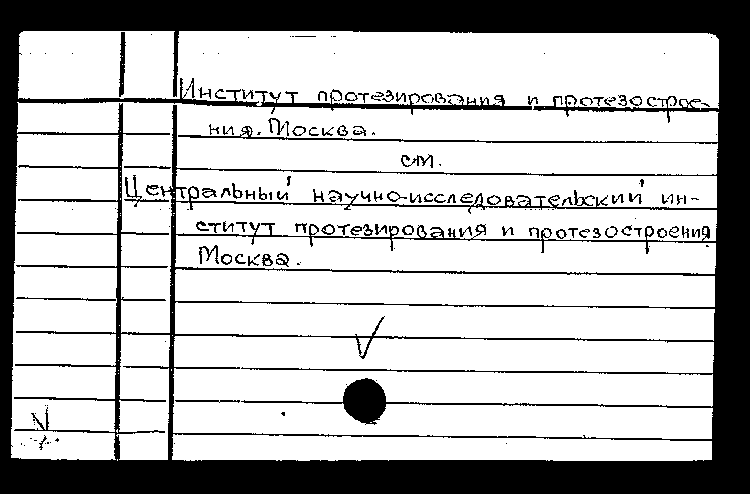 Институт протезирования и протезострое-
ния. Москва.
см.
Центральный научно-исследовательский ин-
ститут протезирования и протезостроения
Москва.